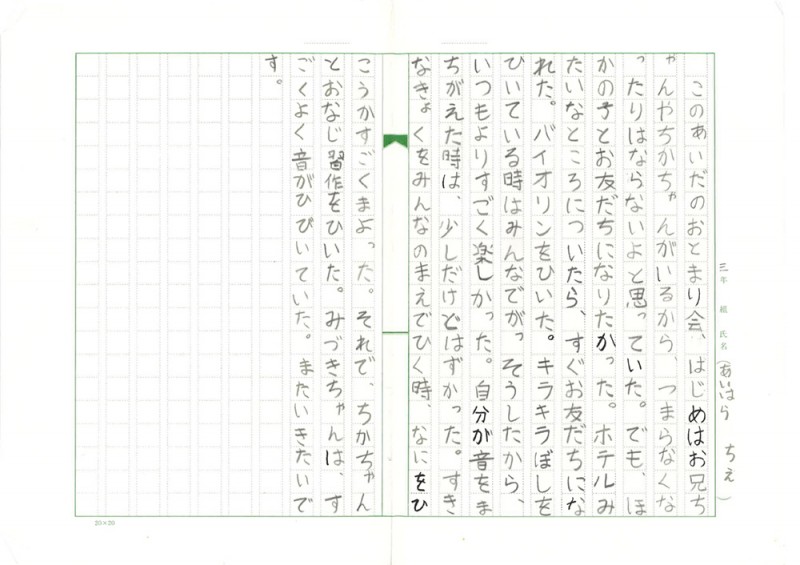 三年 組 氏名(あいはら ちえ)
このあいだのおとまり会、はじめはお兄ち
ゃんやちかちゃんがいるから、つまらなくな
ったりはならないよと思っていた。でも、ほ
かの子とお友だちになりたかった。ホテルみ
たいなところについたら、すぐお友だちにな
れた。バイオリンをひいた。キラキラぼしを
ひいている時はみんなでがっそうしたから、
いつもよりすごく楽しかった。自分が音をま
ちがえた時は、少しだけどはずかった。すき
なきょくをみんなのまえでひく時、なにをひ
こうかすごくまよった。それで、ちかちゃん
とおなじ習作をひいた。みづきちゃんは、す
ごくよく音がひびいていた。またいきたいで
す。
20×20